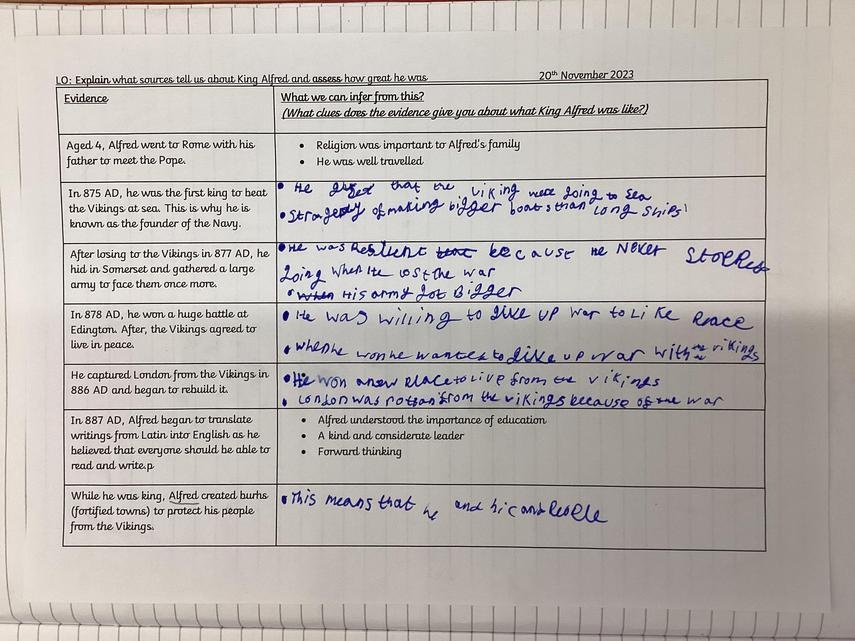 LO: Explain what sources tell us about King Alfred and assess how great he was 20th November 2023
Evidence
What we can infer from this?
(What clues does the evidence give you about what King Alfred was like?)
Aged 4, Alfred went to Rome with his
father to meet the Pope.
• Religion was important to Alfred's family
• He was well travelled
In 875 AD, he was the first king to beat
the Vikings at sea. This is why he is
known as the founder of the Navy.
• He that the viking were going to sea
• of making bigger boats than long ships
After losing to the Vikings in 877 AD, he
hid in Somerset and gathered a large
army to face them once more.
• He was because he never
going when he lost the war
• when His army got Bigger
In 878 AD, he won a huge battle at
Edington. After, the Vikings agreed to
live in peace.
• He was willing to give up war to like peace
• when he won he wanted to give up war with the vikings
He captured London from the Vikings in
886 AD and began to rebuild it.
• He won a new place to live from the vikings
• London was from the vikings because of the war
In 887 AD, Alfred began to translate
writings from Latin into English as he
believed that everyone should be able to
read and write.p
• Alfred understood the importance of education
• A kind and considerate leader
• Forward thinking
While he was king, Alfred created burhs
(fortified towns) to protect his people
from the Vikings.
• This means that he and people